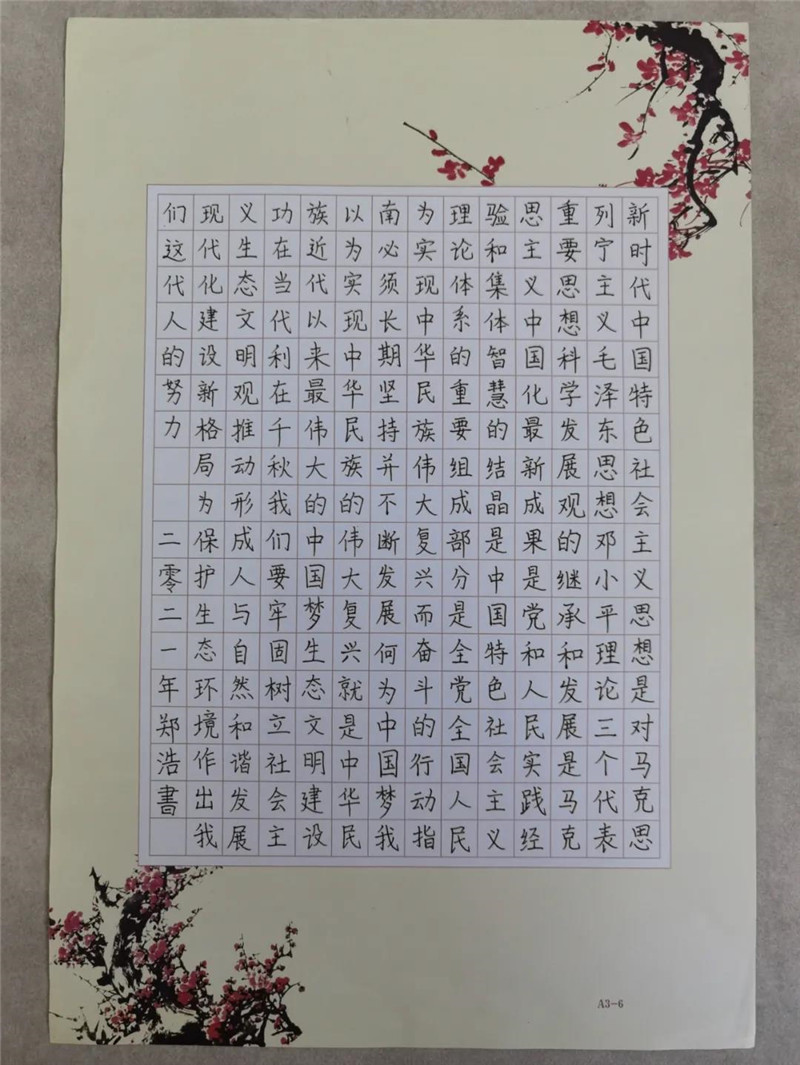 新时代中国特色社会主义思想是对马克思
列宁主义毛泽东思想邓小平理论三个代表
重要思想科学发展观的继承和发展是马克
思主义中国化最新成果是党和人民实践经
验和集体智慧的结晶是中国特色社会主义
理论体系的重要组成部分是全党全国人民
为实现中华民族伟大复兴而奋斗的行动指
南必须长期坚持并不断发展何为中国梦我
以为实现中华民族的伟大复兴就是中华民
族近代以来最伟大的中国梦生态文明建设
功在当代利在千秋我们要牢固树立社会主
义生态文明观推动形成人与自然和谐发展
现代化建设新格局为保护生态环境作出我
们这代人的努力 二零二一年郑浩書
A3-6